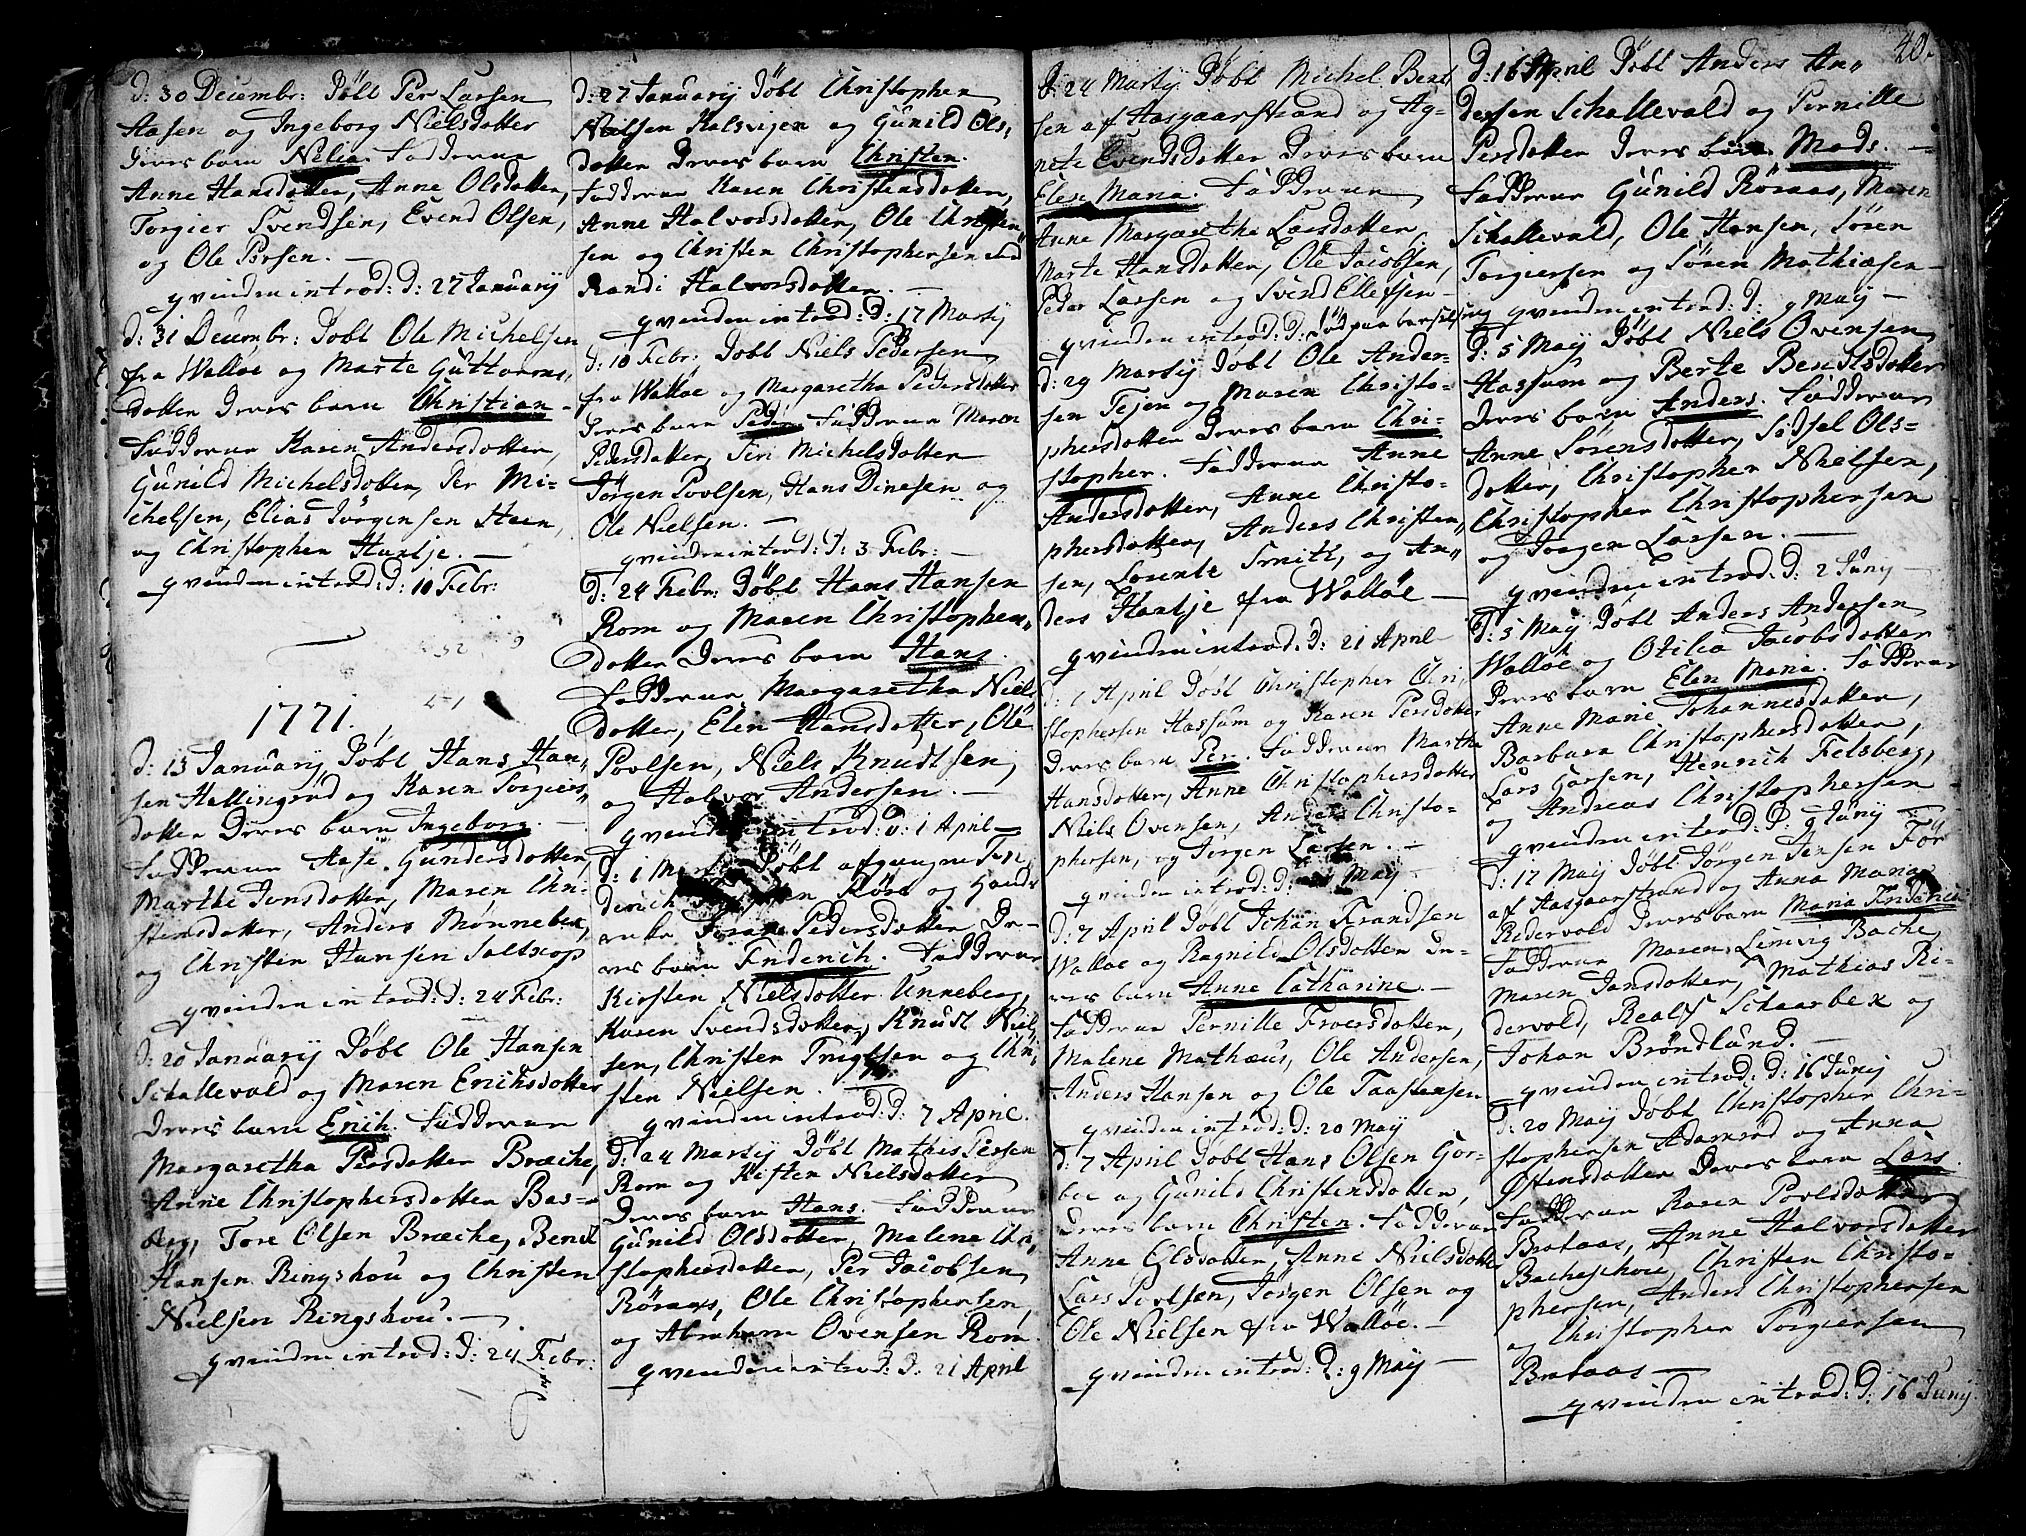 D: 30 Decembr: Döbt Per Larsen
Aasen og Ingeborg Nielsdotter
deres barn Nelia. Fadderne
Anne Hansdotter, Anne Olsdotter,
Torgier Svendsen, Evend Olsen,
og Ole Persen. —
qvinden introd: D: 27 January
D: 31 Decembr: Döbt Ole Michelsen
fra Valløe og Marte Guttorms„
dotter deres barn Christian —
Fadderne Karen Andersdotter,
Gunild Michelsdotter, Per Mi=
chelsen, Elias Jörgensen Steen,
og Christopher Hantje. —
qvinden introd: D: 10 Febr:
1771.
D: 13 January Döbt Hans Han„
sen Hallingrød og Karen Torgiers„
dotter deres barn Ingeborg. —
Fadderne Aase Gundersdotter,
Marthe Jonsdotter, Maren Chri=
stensdotter, Anders Mønnebex,
og Christen Hansen Saltkop
qvinden introd: D: 24 Febr:
D: 20 January Döbt Ole Hansen
Schallevald og Maren Erichsdotter
deres barn Erich. Fadderne
Margaretha Persdotter Bræche,
Anne Christophersdotter Bas=
berg, Tore Olsen Bræche, Bendt
Hansen Ringshou og Christen
Nielsen Ringshou. —
qvinden introd: D: 24 Febr:
D: 27 January Döbt Christopher
Nielsen Kalsvigen og Gunild Ols„
dotter deres barn Christen.
Fadderne Karen Christensdotter,
Anne Halvorsdotter, Ole Christen„
sen og Christen Christophersen
Randi Halvorsdotter. —
qvinden introd: D: 17 Martij
D: 10 Febr: Döbt Niels Pedersen
fra Walløe og Margaretha Pedersdotter
deres barn Peder Fadderne Maren
Pedersdotter, Siri Michelsdotter
Jörgen Povlsen, Hans Dinesen og
Ole Nielsen. —
qvinden introd: D: 3 Febr: —
D: 24 Febr: Döbt Hans Hansen
Rom og Maren Christophers„
dotter deres barn Hans.
Fadderne Margaretha Niels
dotter, Elen Hansdotter, Ole
Povlsen, Niels Knudtsen,
og Halvor Andersen. —
qvinden introd: D: 1 April —
D: 1 Döbt afgangne Fri
derich Röse og
Pedersdotter De=
res barn Friderich. Fadderne
Kirsten Nielsdotter Unneberg,
Karen Svendsdotter, Knudt Niel„
sen, Christen Trugelsen og Chri„
sten Nielsen. —
qvinden introd: D: 7 April.
D: 24 Martij Döbt Mathis Persen
Rom og Kisten Nielsdotter
deres barn Hans. Fadderne
Gunild Olsdotter, Malene Chri„
stophersdotter, Per Jacobsen
Röraas, Ole Christophersen,
og Abraham Ovensen Rom.
qvinden introd: D: 21 April
40.
D: 24 Martij Döbt Michel Bent
sen af Aasgaarstrand og Ag=
nete Evendsdotter deres barn
Elen Maria. Fadderne
Anne Margaretha Larsdotter,
Marte Hansdotter, Ole Jacobsen,
Peder Larsen og Svend Ellefsen —
qvinden introd: D: Död paa barselseng
D: 29 Martij Döbt Ole Ander=
sen Tejen og Maren Christo=
phersdotter deres barn Chri=
stopher. Fadderne Anne
Andersdotter, Anne Christo=
phersdotter, Anders Christen„
sen, Lorentz Smitt, og An„
ders Hantje fra Walløe —
qvinden introd: D: 21 April
D: 1 April Döbt Christopher Chri„
stophersen Hassum og Karen Persdotter
deres barn Per. Fadderne Marthe
Hansdotter, Anne Christophersdotter
Niels Ovensen, Anders Christo=
phersen, og Jörgen Larsen. —
qvinden introd: D: May —
D: 7 April Döbt Johan Frandsen
Walløe og Ragnild Olsdotter De=
res barn Anne Catharine. —
Fadderne Pernille Froersdotter,
Malene Mathæus, Ole Andersen,
Anders Hansen og Ole Taastensen
qvinden introd: D: 20 May
D: 7 April Döbt Hans Olsen Gor=
boe og Gunild Christensdotter,
deres barn Christen. Fadderne
Anne Olsdotter, Anne Nielsdotter
Lars Povlsen, Jörgen Olsen og
Ole Nielsen fra Walløe. —
qvinden introd: D: 9 May —
D: 16 April Döbt Anders An„
dersen Schallevald og Pernille
Persdotter deres barn Mads. —
Fadderne Gunild Röraas, Maren
Schallevald, Ole Hansen, Sören
Torgiersen og Sören Mathiæsen —
qvinden introd: D: 9 May —
D: 5 May Döbt Niels Ovensen
Hassum og Berte Bendtsdotter
deres barn Anders. Fadderne
Anne Sörensdotter, Sidsel Ols=
dotter, Christopher Nielsen,
Christopher Christophersen
og Jörgen Larsen. —
qvinden introd: D: 2 Juny —
D: 5 May Döbt Anders Andersen
Walløe og Otilia Jacobsdotter
deres barn Elen Maria. Fadderne
Anne Marie Johannesdotter,
Barbara Christophersdotter,
Lars Larsen, Henrich Felsberg,
og Andreas Christophersen
qvinden introd: D: 9 Juny —
D: 17 May Döbt Jörgen Jensen För
af Aasgaarstrand og Anna Maria
Ridervold deres barn Maria Friderica
Fadderne Maren Lemvig Bache,
Maren Jansdotter, Mathias Ri=
dervold, Schaarbex og
Johan Bröndlund. —
qvinden introd: D: 16 Juny
D: 20 May Döbt Christopher Chri=
stophersen Adamsrød og Anna
Östensdotter deres barn Lars.
Fadderne Karen Povlsdotter
Brataas, Anne Halvorsdotter
Bacheschou, Christen Christo=
phersen, Anders Christophersen
og Christopher Torgiersen
Brataas —
qvinden introd: D: 16 Juny.